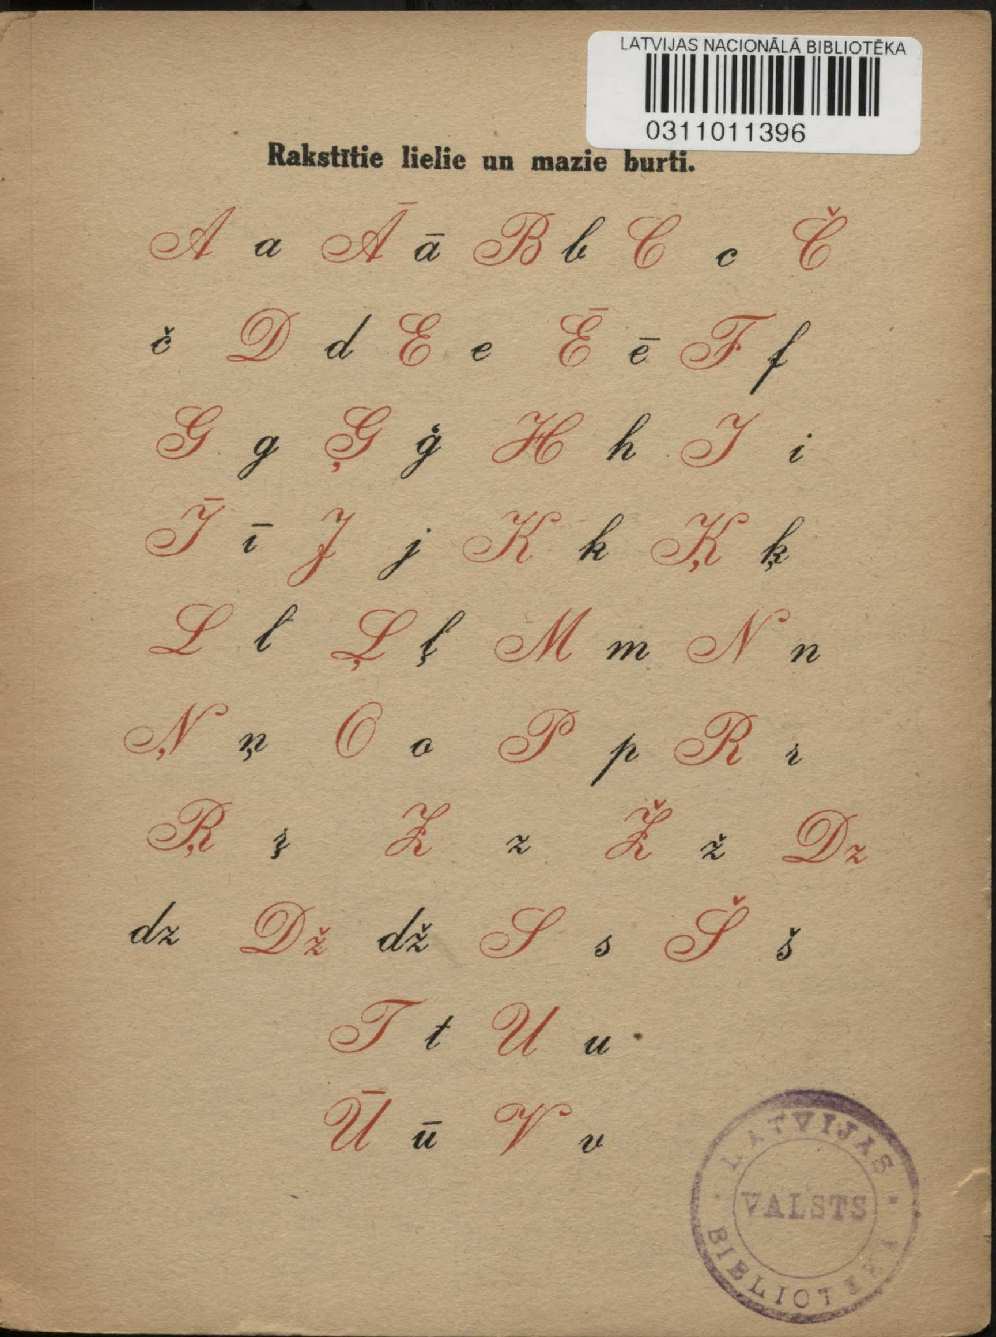 LATVIJAS NACIONĀLĀ BIBLIOTĒKA
0311011396
Rakstītie lielie un mazie burti.
A a Ā ā B b C c Č
č D d E e Ē ē F f
G g Ģ ģ H h I i
Ī ī J j K k Ķ ķ
L l Ļ ļ M m N n
Ņ ņ O o P p R r
Ŗ ŗ Z z Ž ž Dz
dz Dž dž S s Š š
T t U u
Ū ū V v
LATVIJAS
VALSTS
BIBLIOTEKA